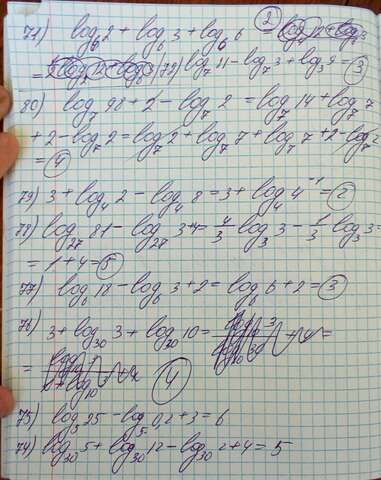 71) log₆2 + log₆3 + log₆6 (2)
72) log₇ 21 - log₇3 + log₃9 = (3)
80) log₇98 + 2 - log₇2 = log₇14 + log₇7
+ 2 - log₇2 = log₇2 + log₇7 + log₇7 + 2 - log₇2
= (4)
79) 3 + log₄2 - log₄8 = 3 + log₄4⁻¹ = (2)
78) log₂₇81 - log₂₇3 + 4 = 4/3 log₃3 - 1/3 log₃3 =
= 1 + 4 = (5)
77) log₆18 - log₆3 + 2 = log₆6 + 2 = (3)
76) 3 + log₃₀3 + log₃₀10 =
= (4)
75) log₅25 - log₅0,2 + 3 = 6
74) log₃₀5 + log₃₀12 - log₃₀2 + 4 = 5